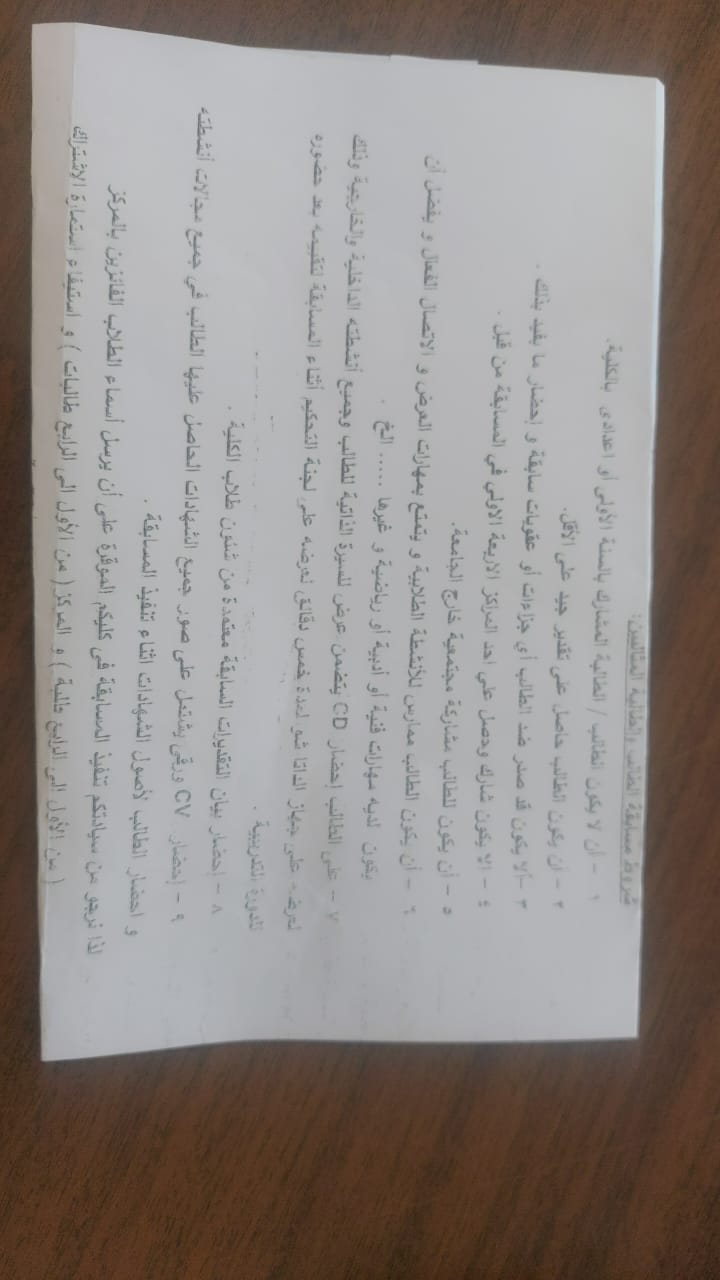 شروط مسابقة الطالب والطالبة المثاليين:
١ – أن لا يكون الطالب / الطالبة المشارك بالسنة الأولى أو اعدادى بالكلية.
٢ – أن يكون الطالب حاصل على تقدير جيد على الأقل.
٣ –ألا يكون قد صدر ضد الطالب أي جزاءات أو عقوبات سابقة و إحضار ما يفيد بذلك .
٤ – الا يكون شارك وحصل على احد المراكز الاربعة الاولي في المسابقة من قبل .
٥ – أن يكون للطالب مشاركة مجتمعية خارج الجامعة.
٦ – أن يكون الطالب ممارس للأنشطة الطلابية و يتمتع بمهارات العرض و الاتصال الفعال و يفضل أن
يكون لديه مهارات فنية أو أدبية أو رياضية و غيرها ..... الخ .
٧ – على الطالب إحضار CD يتضمن عرض للسيرة الذاتية للطالب وجميع أنشطته الداخلية والخارجية وذلك
لعرضه على جهاز الداتا شو لمدة خمس دقائق لعرضه على لجنة التحكيم أثناء المسابقة لتقييمه بعد حضوره
للدورة التدريبية .
٨ – إحضار بيان التقديرات السابقة معتمدة من شئون طلاب الكلية .
٩ – إحضار CV ورقى يشتمل على صور جميع الشهادات الحاصل عليها الطالب في جميع مجالات أنشطته
و احضار الطالب لأصول الشهادات اثناء تنفيذ المسابقة .
لذا نرجو من سيادتكم تنفيذ المسابقة فى كليتكم الموقرة على أن يرسل أسماء الطلاب الفائزين بالمركز
( من الأول الى الرابع طلبة ) و المركز ( من الأول الى الرابع طالبات ) و استيفاء استمارة الاشتراك